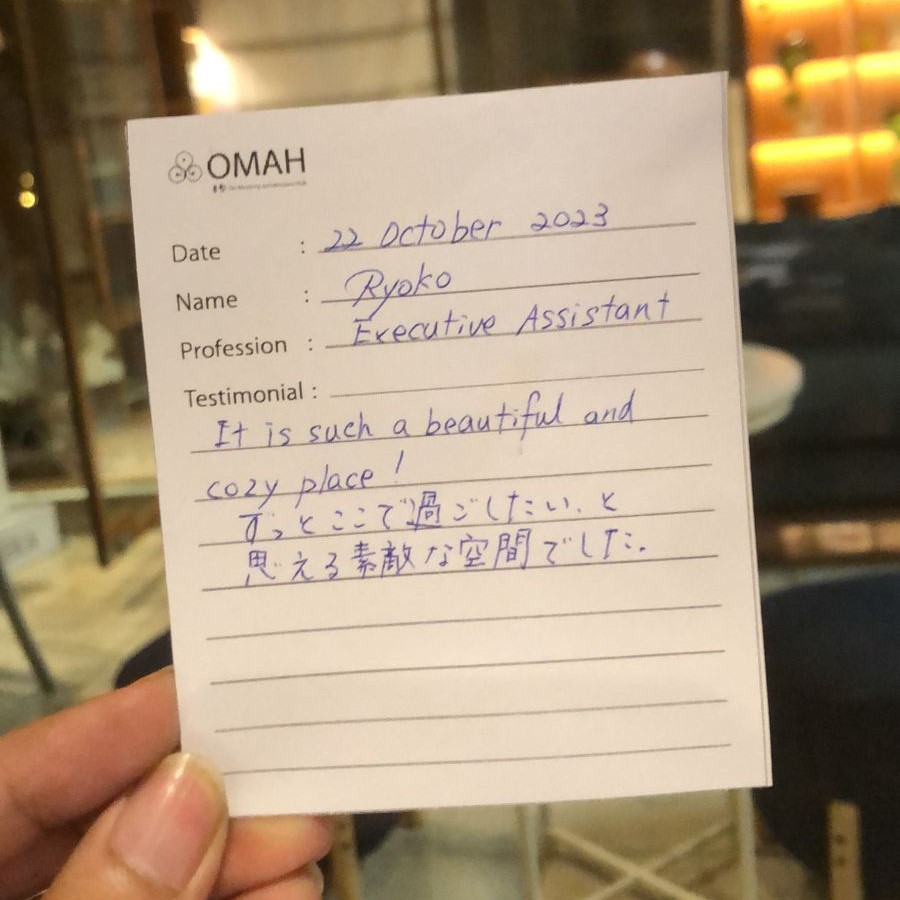 OMAH
Date : 22 October 2023
Name : Ryoko
Profession : Executive Assistant
Testimonial :
It is such a beautiful and
cozy place!
ずっとここで過ごしたい、と
思える素敵な空間でした.